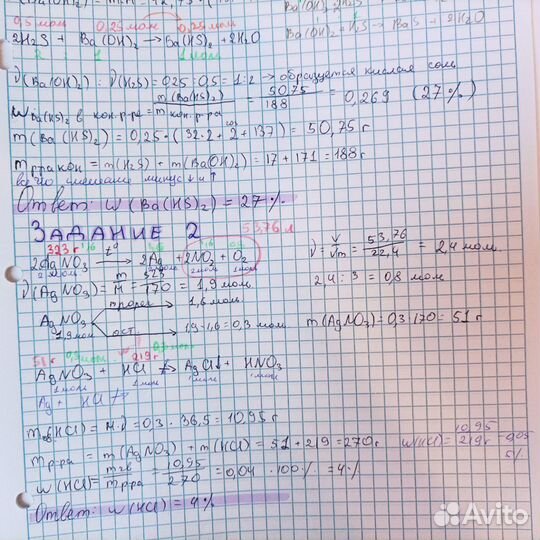 0,5 моль 0,25 моль 0,25 моль
2H₂S + Ba(OH)₂ → Ba(HS)₂ + 2H₂O
2 1 1 моль
Ba(OH)₂ + H₂S → BaS + 2H₂O
ν(Ba(OH)₂) : ν(H₂S) = 0,25 : 0,5 = 1:2 → образуется кислая соль
W Ba(HS)₂ в кон. р-ре = m(Ba(HS)₂) / m кон. р-ра = 50,75 / 188 = 0,269 (27%)
m(Ba(HS)₂) = 0,25 · (32·2 + 2 + 137) = 50,75 г
m р-ра кон = m(H₂S) + m(Ba(OH)₂) = 17 + 171 = 188 г
минус ↓ и ↑
Ответ: W(Ba(HS)₂) = 27%.
ЗАДАНИЕ 2
53,76 л
323 г 1,6 1,6 1,6 0,8
2AgNO₃ t° → 2Ag + 2NO₂ + O₂
2 моль 2 моль 2 моль 1 моль
ν = V/Vm = 53,76 / 22,4 = 2,4 моль
ν(AgNO₃) = m/M = 323/170 = 1,9 моль
2,4 : 3 = 0,8 моль
AgNO₃ прореаг. 1,6 моль
1,9 моль ост. 1,9 - 1,6 = 0,3 моль m(AgNO₃) = 0,3 · 170 = 51 г
51 г 0,3 моль 219 г 0,3 моль
AgNO₃ + HCl → AgCl↓ + HNO₃
1 моль 1 моль 1 моль 1 моль
Ag + HCl
m в(HCl) = M · ν = 0,3 · 36,5 = 10,95 г
m р-ра = m(AgNO₃) + m(HCl) = 51 + 219 = 270 г W(HCl) = 10,95 / 219 г = 0,05
5%
W(HCl) = m в / m р-ра = 10,95 / 270 = 0,04 · 100% = 4%
Ответ: W(HCl) = 4%
Avito